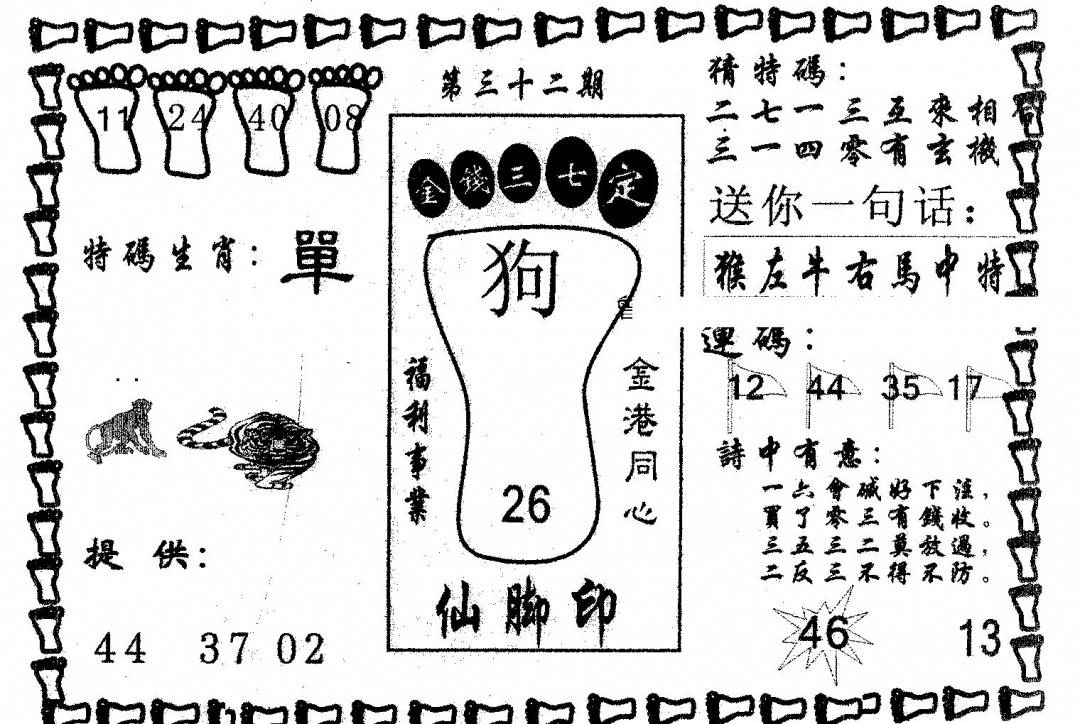 第三十二期
11 24 40 08
特碼生肖：單
提供：
44 37 02
金錢三七定
狗
福利事業
金港同心
26
仙脚印
猜特碼：
二七一三互來相合
三一四零有玄機
送你一句话：
猴左牛右馬中特
連碼：
12 44 35 17
詩中有意：
一六會碱好下注，
買了零三有錢收。
三五三二莫放過，
二反三不得不防。
46 13